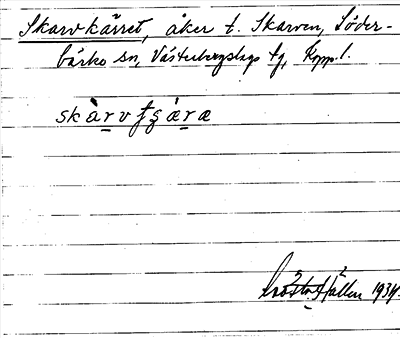 Skarvkärret, åker t. Skarven, Söder-
bärke sn, Västerbergslags tg, Kopp. l.
skàrvʈʂæ̀ræ
Gösta Hallen 1934.